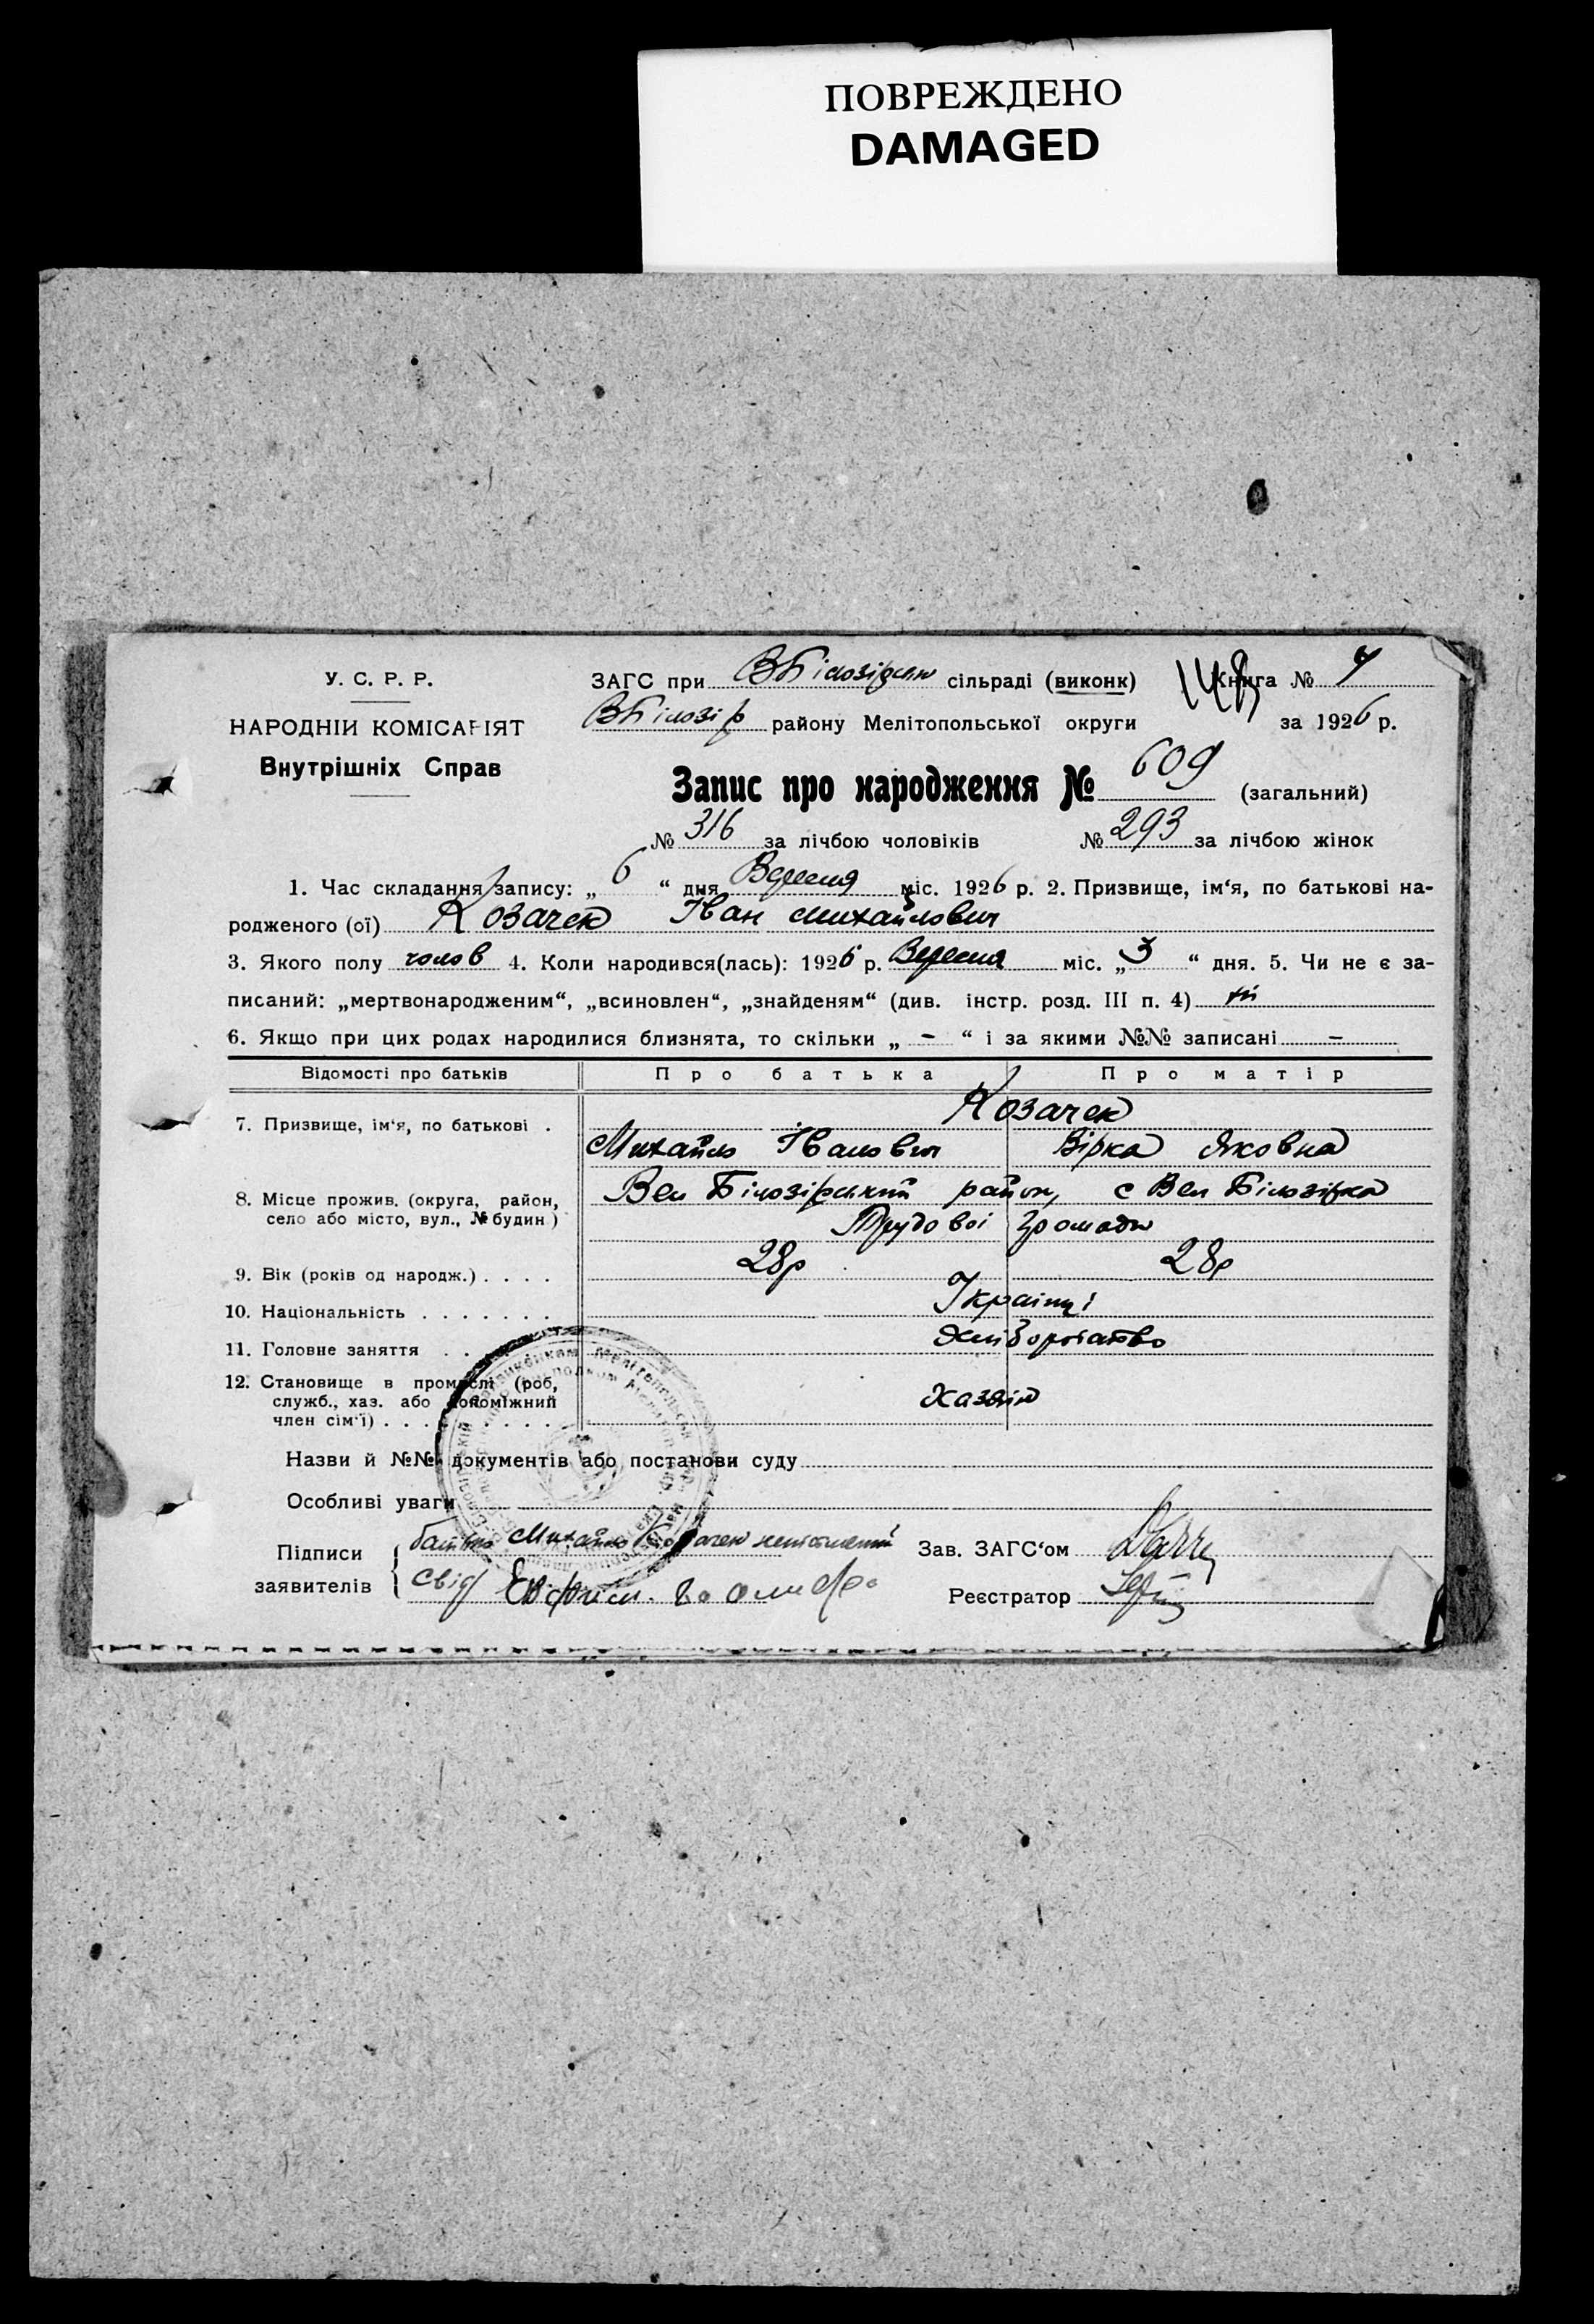 ПОВРЕЖДЕНО
DAMAGED
У. С. Р. Р.
НАРОДНІЙ КОМІСАРІЯТ
Внутрішніх Справ
ЗАГС при В Білозірськ сільраді (виконк) Книга № 4
В Білозір району Мелітопольської округи за 1926 р.
Запис про народження № 609 (загальний)
№ 316 за лічбою чоловіків № 293 за лічбою жінок
1. Час складання запису: „ 6 “ дня Вересня міс. 1926 р. 2. Призвище, ім‘я, по батькові на-
родженого (ої) Козачек Іван Михайлович
3. Якого полу чолов 4. Коли народився(лась): 1926 р. Вересня міс. „ 3 “ дня. 5. Чи не є за-
писаний: „мертвонародженим“, „всиновлен“, „знайденям“ (див. інстр. розд. III п. 4) ні
6. Якщо при цих родах народилися близнята, то скільки „ – “ і за якими №№ записані –
Відомості про батьків Про батька Про матір
7. Призвище, ім‘я, по батькові . Козачек
Михайло Іванович Вірка Яковна
8. Місце прожив. (округа, район, село або місто, вул., № будин ) Вел Білозірський район, с Вел Білозірка
Трудової громади
9. Вік (років од народж.) . . . . 28р 28р
10. Національність . . . . . . . Українці
11. Головне заняття . . Хліборобство
12. Становище в промислі (роб,
служб., хаз. або допоміжний
член сім‘ї) . . . . . . . . . Хазяїн
Назви й №№ документів або постанови суду
Особливі уваги
Підписи
заявителів
батько Михайло Козачек неписьменний
свід Ефрим.
Зав. ЗАГС‘ом
Реєстратор